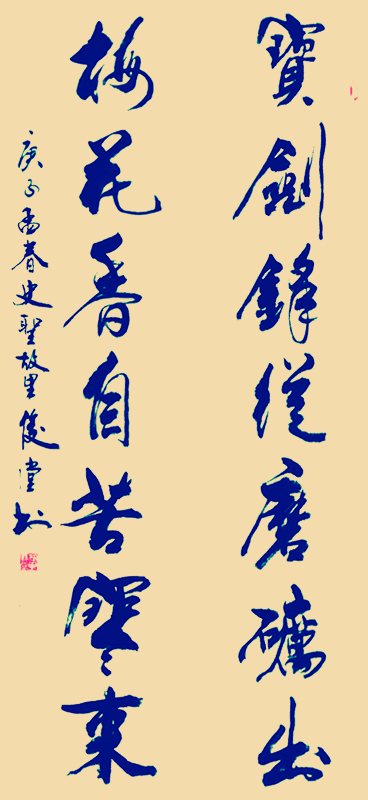 寶劍鋒從磨礪出
梅花香自苦寒來
庚子孟春史聖故里堂书